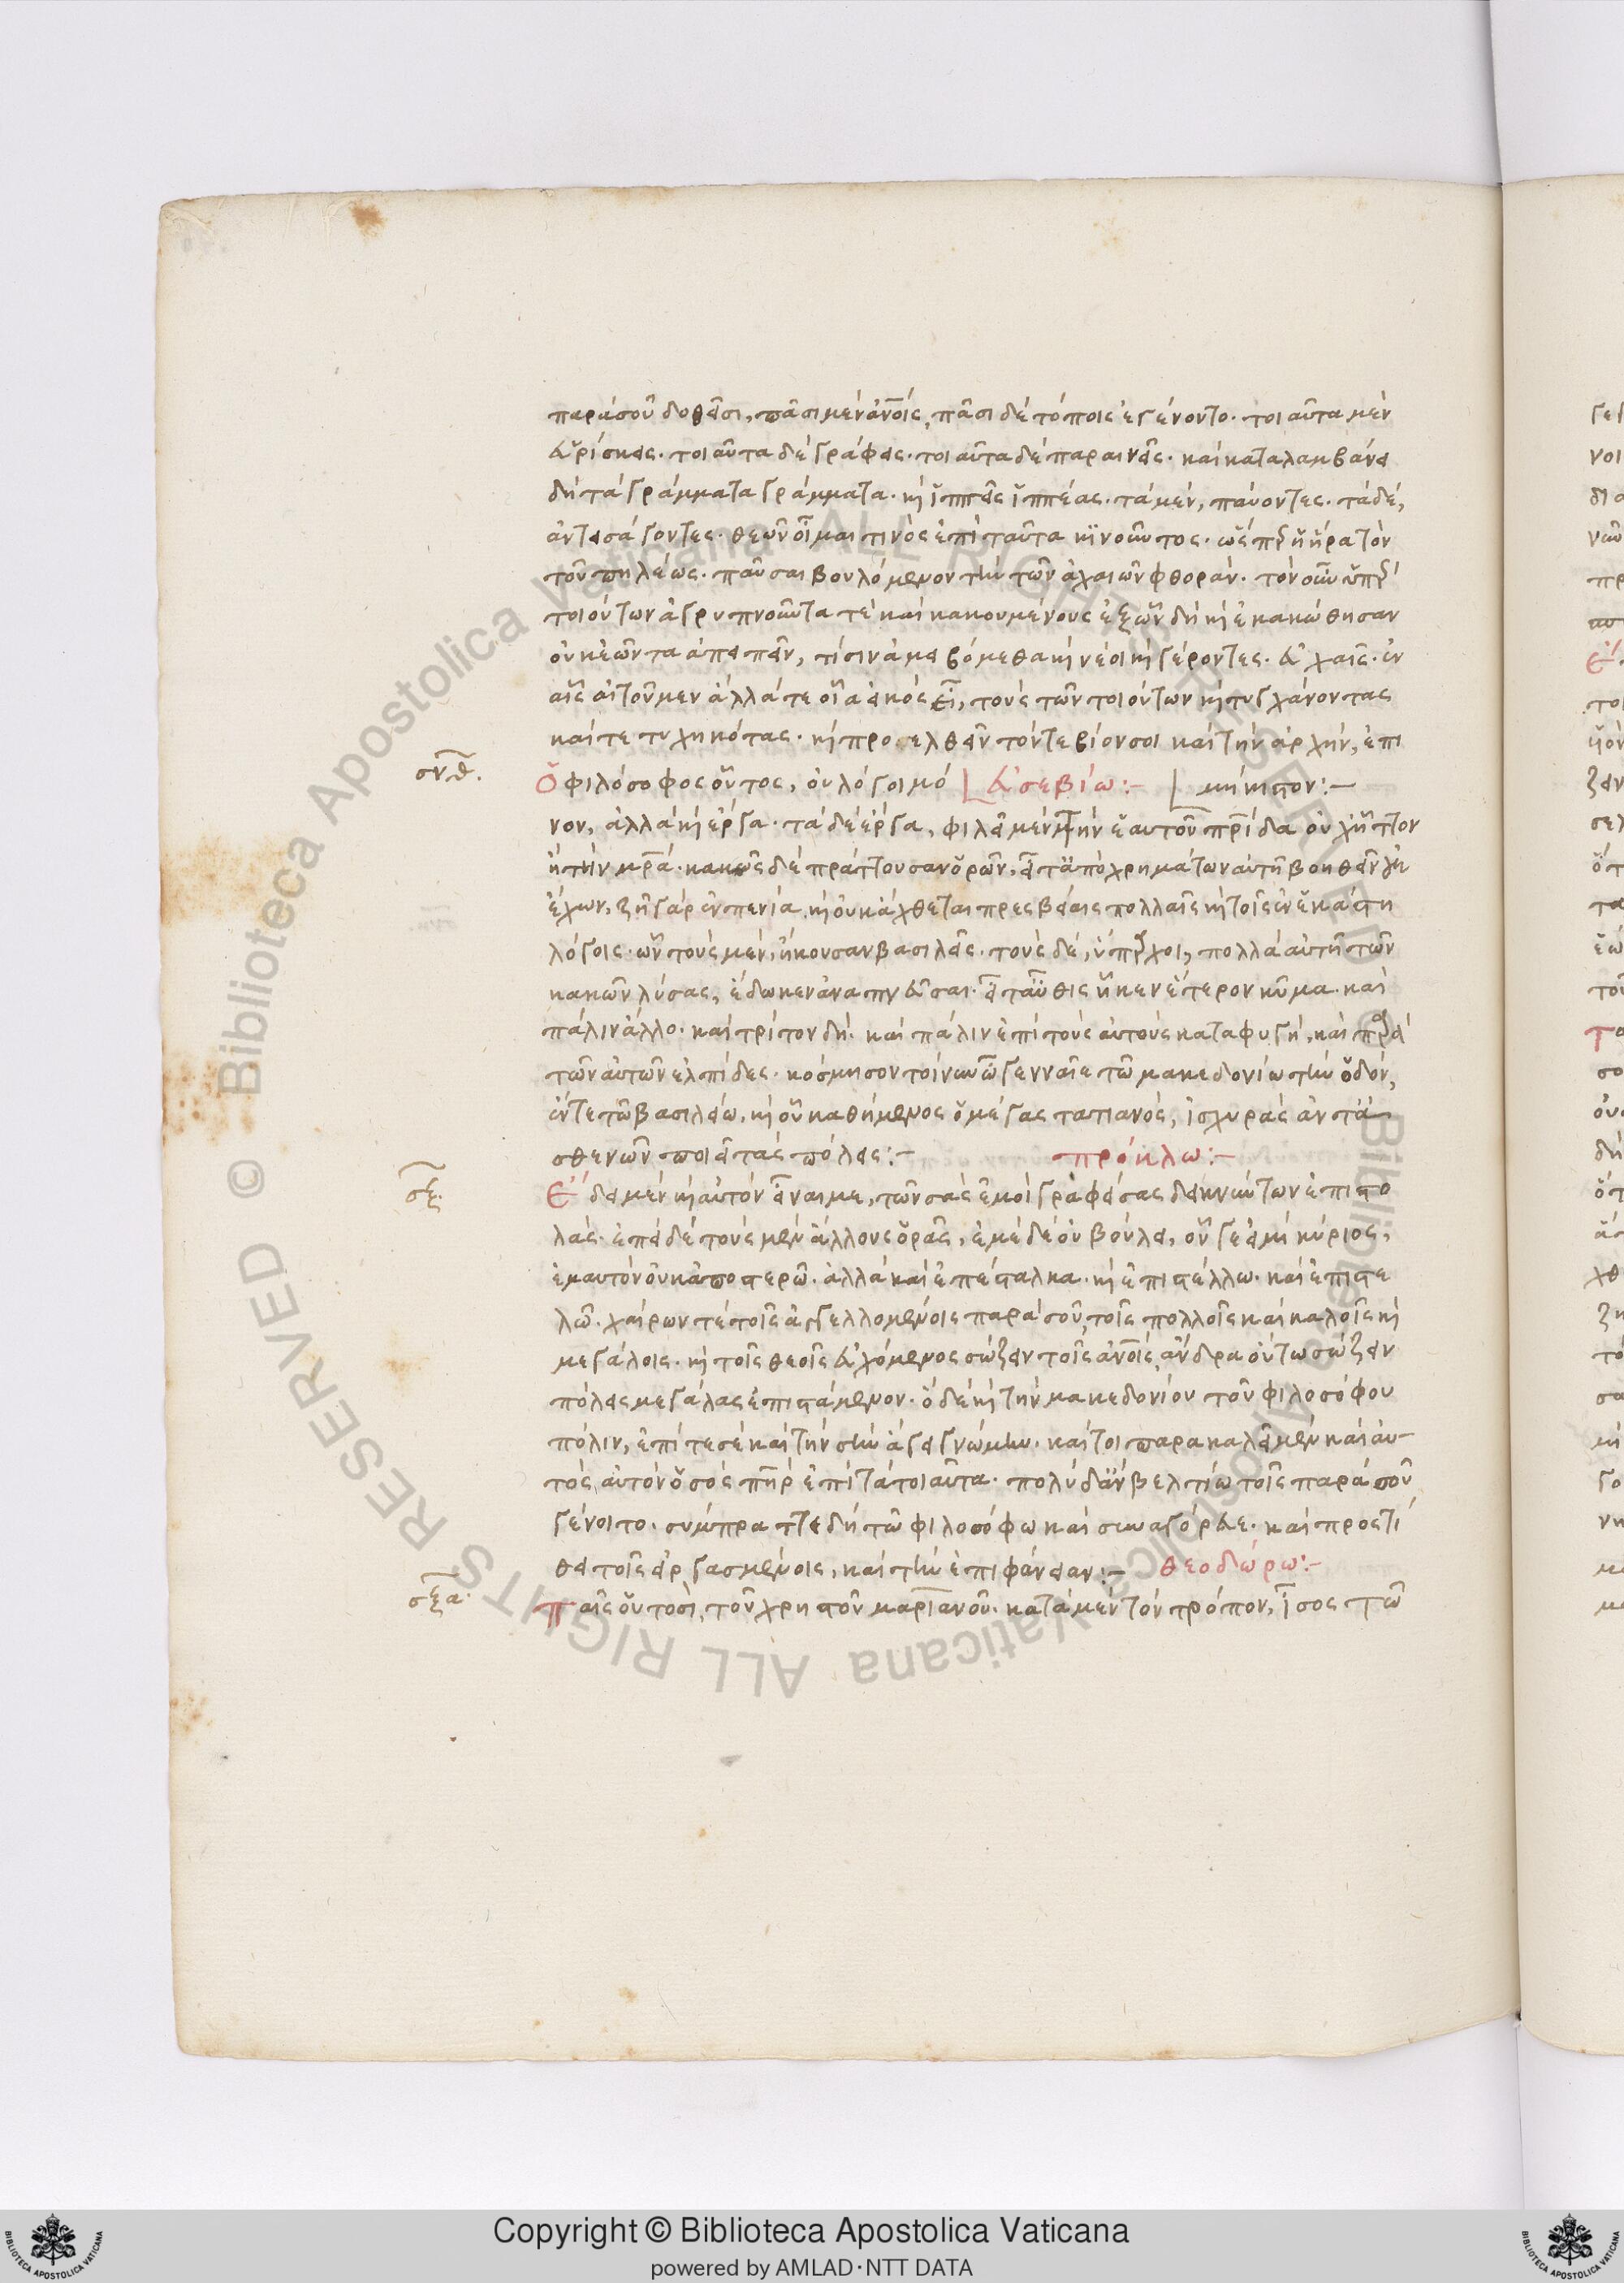 παρὰ σοῦ δοθεῖσι, πᾶσι μὲν ἀνοις, πᾶσι δὲ τόποις ἐγένοντο. τοιαῦτα μὲν
εὑρίσκεις. τοιαῦτα δὲ γράφεις. τοιαῦτα δὲ παραινεῖς. καὶ καταλαμβάνει
δὴ τὰ γράμματα γράμματα. καὶ ἱππεῖς ἱππέας. τὰ μὲν, παύοντες. τὰ δὲ,
ἀντεισάγοντες. θεῶν οἶμαι τινὸς ἐπὶ ταῦτα κινοῦντος. ὥσπερ ἡ ἥρα τὸν
τοῦ πηλέως. παῦσαι βουλόμενον τὴν τῶν ἀχαιῶν φθοράν. τὸν οὖν ὑπὲρ
τοιούτων ἀγρυπνοῦντα τὲ καὶ κακουμένους ἐξ ὧν δὴ καὶ ἐκακώθησαν
οὐκ ἐῶντα ἀπειπεῖν, τίσιν ἀμειβόμεθα καὶ νέοι καὶ γέροντες. εὐχαῖς. ἐν
αἷς αἰτοῦμεν ἄλλα τε οἷα εἰκός ἐστι, τοὺς τῶν τοιούτων καὶ τυγχάνοντας
καί τε τυχηκότας. καὶ προσελθεῖν τόν τε βίον σοι καὶ τὴν ἀρχήν, ἐπι
σνθ. Ὁ φιλόσοφος οὗτος, οὐ λόγοι μό εὐσεβίω:- μήκιστον:-
νον, ἀλλὰ καὶ ἔργα. τὰ δὲ ἔργα, φιλεῖ μὲν τὴν ἑαυτοῦ πρίδα οὐχ ἧττον
ἢ τὴν μρα. κακῶς δὲ πράττουσαν ὁρῶν, εἶτ' ἀπὸ χρημάτων αὐτῇ βοηθεῖν οὐκ
ἔχων, ζῇ γὰρ ἐν πενία, καὶ οὐκ ἄχθεται πρεσβείαις πολλαῖς καὶ τοῖς ἐν ἑκάστη
λόγοις. ὧν τοὺς μὲν, ἤκουσαν βασιλεῖς. τοὺς δὲ, ὕπαρχοι, πολλὰ αὐτῇ τῶν
κακῶν λύσας, ἔδωκεν ἀναπνεῦσαι. εἶτ' αὖθις ἧκεν ἕτερον κῦμα. καὶ
πάλιν ἄλλο. καὶ τρίτον δή. καὶ πάλιν ἐπὶ τοὺς αὐτοὺς καταφυγή, καὶ παρὰ
τῶν αὐτῶν ἐλπίδες. κόσμησον τοίνυν ὦ γενναῖε τῶ μακεδονίω τὴν ὁδόν,
ἔν τε τῶ βασιλείω, καὶ οὗ καθήμενος ὁ μέγας τατιανὸς, ἰσχυρὰς ἀντὰ
σθενῶν ποιεῖ τὰς πόλεις:- πρόκλω:-
σξ. Ἔδει μὲν καὶ αὐτὸν εἶναί με, τῶν σὰς ἐμοὶ γραφείσας δεικνύντων ἐπιστο
λάς. ἐπεὶ δὲ τοὺς μὲν ἄλλους ὁρᾶς, ἐμὲ δὲ οὐ βούλει, οὗ γε εἰμὶ κύριος,
ἐμαυτὸν οὐκ ἀποστερῶ. ἀλλὰ καὶ ἐπέσταλκα. καὶ ἐπιστέλλω. καὶ ἐπιστε
λῶ. χαίρων τὲ τοῖς ἀγγελλομένοις παρὰ σοῦ, τοῖς πολλοῖς καὶ καλοῖς καὶ
μεγάλοις. καὶ τοῖς θεοῖς εὐχόμενος σώζειν τοῖς ἀνοις ἄνδρα οὕτω σώζειν
πόλεις μεγάλας ἐπιστάμενον. ὁ δὲ καὶ τὴν μακεδονίου τοῦ φιλοσόφου
πόλιν, ἐπί τε σὲ καὶ τὴν σὴν ἄγει γνώμην. καίτοι παρακαλεῖ μὲν καὶ αὐ-
τὸς αὐτὸν ὁ σὸς πηρ ἐπὶ τὰ τοιαῦτα. πολὺ δ' ἂν βελτίω τοῖς παρὰ σοῦ
γένοιτο. σύμπραττε δὴ τῶ φιλοσόφω καὶ συναγόρευε. καὶ προστί
θει τοῖς εἰργασμένοις, καὶ τὴν ἐπιφάνειαν:- θεοδώρω:-
σξα. Παῖς οὑτοσὶ, τοῦ χρηστοῦ μαριανοῦ. κατὰ μὲν τὸν τρόπον, ἴσος τῶ
Copyright © Biblioteca Apostolica Vaticana
powered by AMLAD·NTT DATA